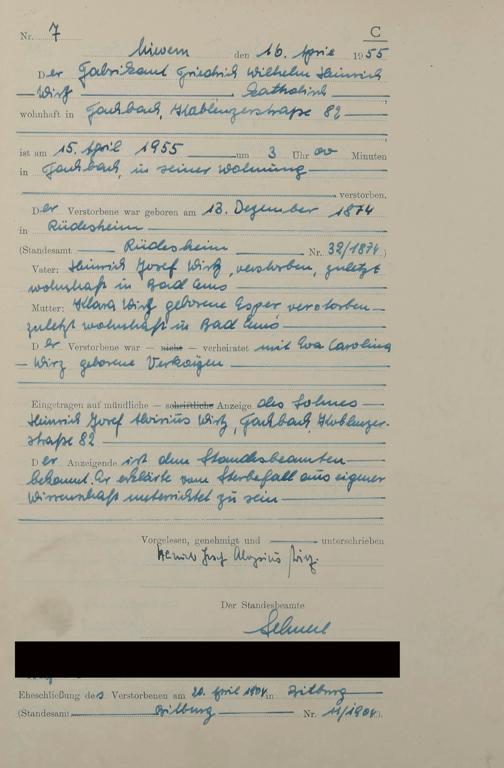 Nr. 7 C
Nievern den 16. April 1955
Der Fabrikant Friedrich Wilhelm Heinrich
Wirz katholisch
wohnhaft in Fachbach, Koblenzerstraße 82
ist am 15. April 1955 um 3 Uhr 00 Minuten
in Fachbach, in seiner Wohnung
verstorben.
Der Verstorbene war geboren am 13. Dezember 1874
in Rüdesheim
(Standesamt Rüdesheim Nr. 32/1874.)
Vater: Heinrich Josef Wirz, verstorben, zuletzt
wohnhaft in Bad Ems
Mutter: Klara Wirz geborene Esper verstorben
zuletzt wohnhaft in Bad Ems
Der Verstorbene war — nicht — verheiratet mit Eva Carolina
Wirz geborene
Eingetragen auf mündliche — schriftliche Anzeige des Sohnes
Heinrich Josef Wirz, Fachbach, Koblenzer-
straße 82
Der Anzeigende ist dem Standesbeamten
bekannt. Er erklärte vom Sterbefall aus eigener
Wissenschaft unterrichtet zu sein
Vorgelesen, genehmigt und unterschrieben
Heinrich Josef Aloysius Wirz.
Der Standesbeamte
Eheschließung des Verstorbenen am 20. April 1904 in Bitburg
(Standesamt Bitburg Nr. 11/1904).